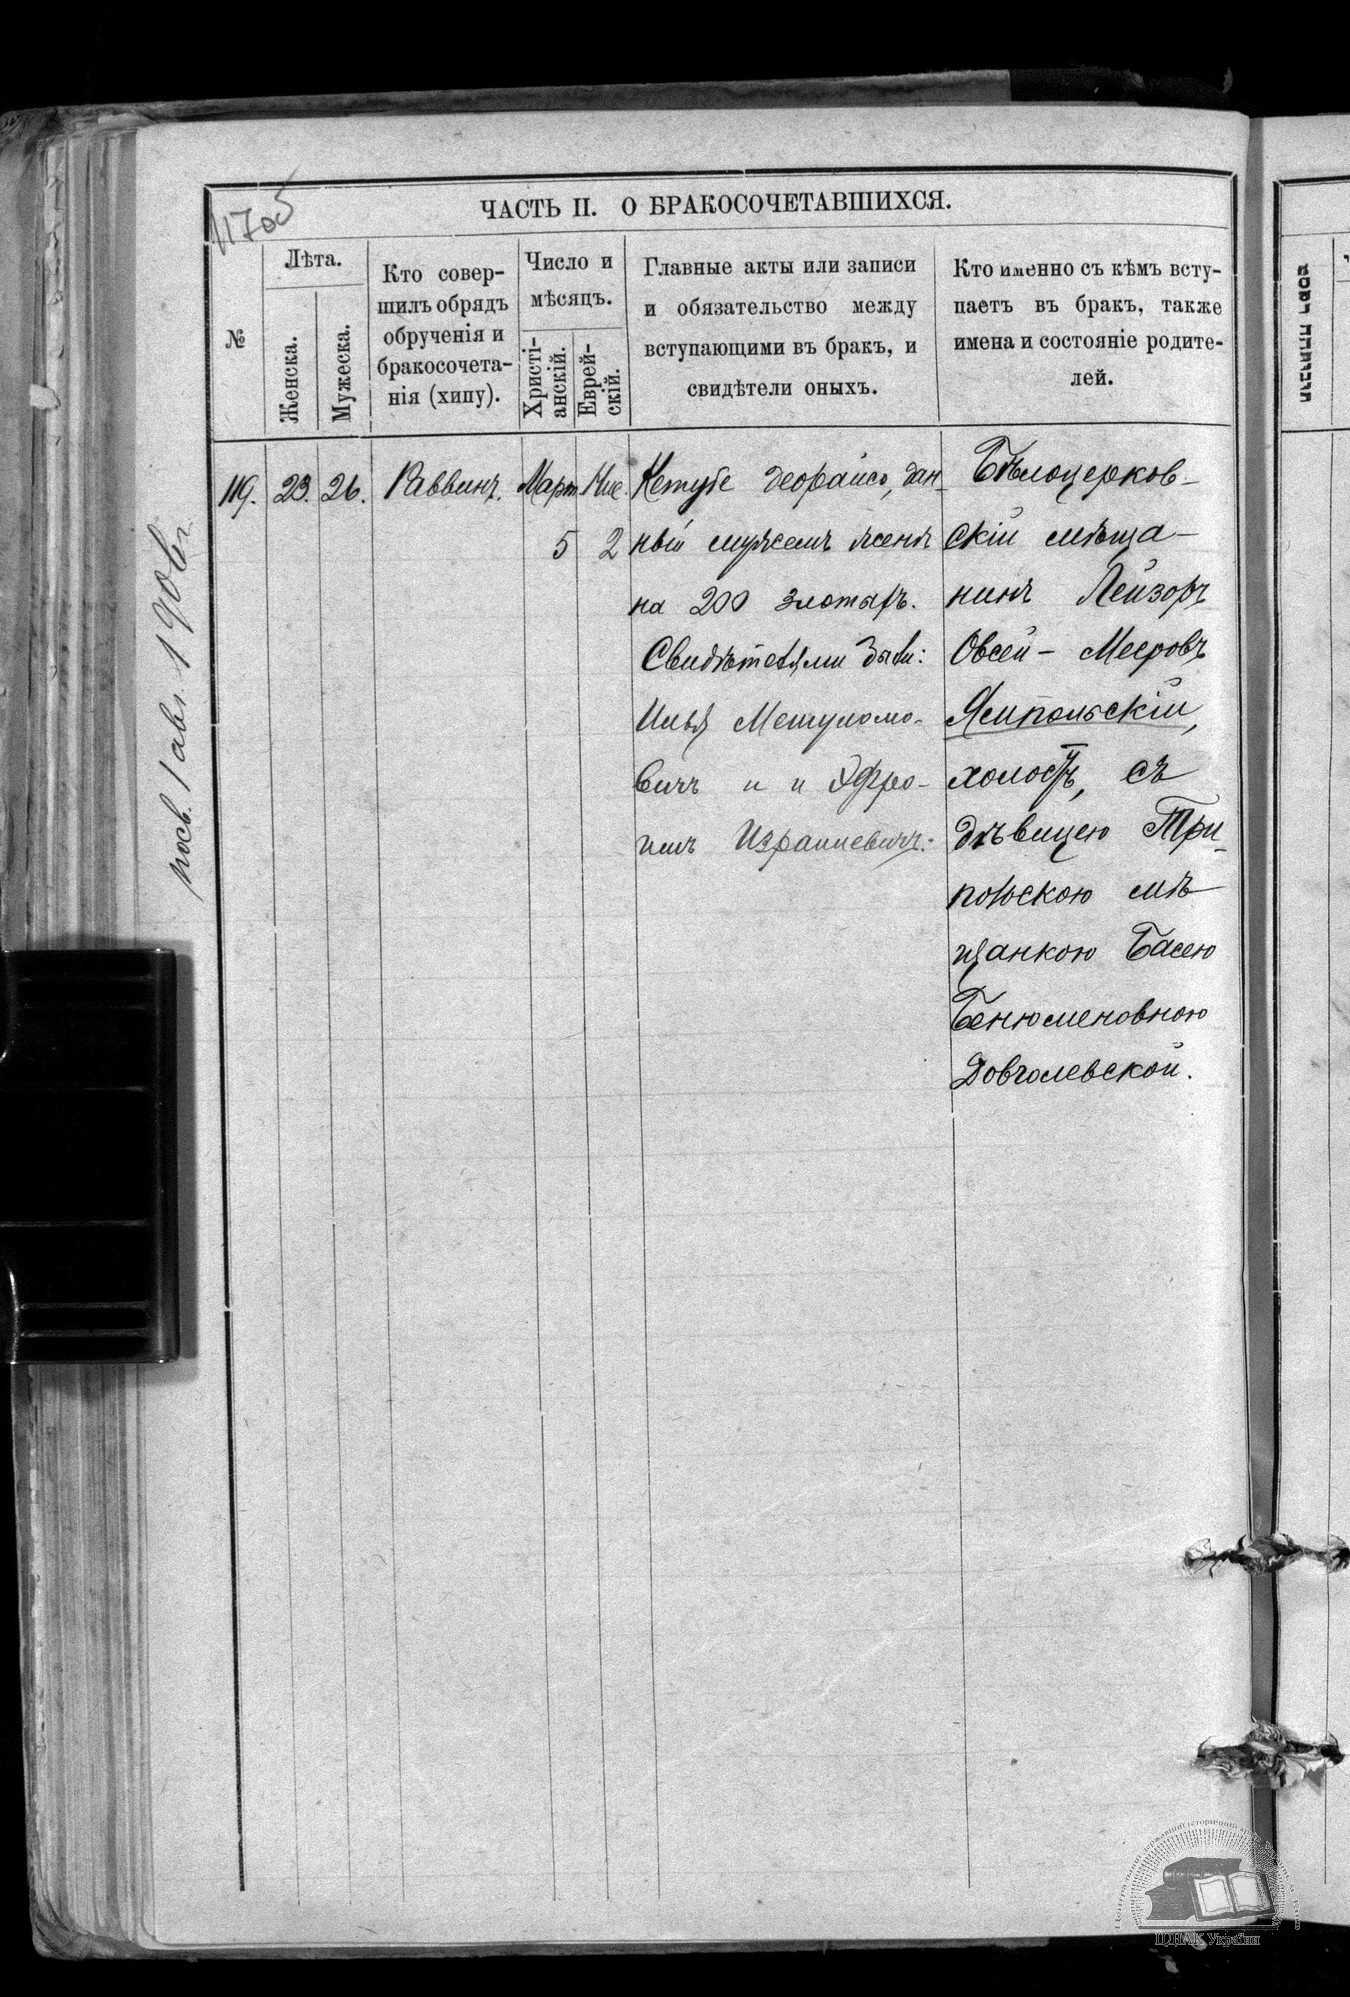 11705
ЧАСТЬ II. О БРАКОСОЧЕТАВШИХСЯ.
№
Лѣта.
Женска.
Мужеска.
Кто совер-
шилъ обрядъ
обрученія и
бракосочета-
нія (хипу).
Число и
мѣсяцъ.
Христі-
анскій.
Еврей-
скій.
Главные акты или записи
и обязательство между
вступающими въ бракъ, и
свидѣтели оныхъ.
Кто именно съ кѣмъ всту-
паетъ въ бракъ, также
имена и состояніе родите-
лей.
119.
23.
26.
Раввинъ.
Март
5
Нис.
2
Кетубе деорайсо, дан-
ный мужемъ женѣ
на 200 злотыхъ.
Свидѣтелями были:
Илья
вичъ и и Эфро-
имъ Израилевичъ.
Бѣлоцерков-
скій мѣща-
нинъ Лейзоръ
Овсей - Мееровъ
Ямпольскій,
холостъ, съ
дѣвицею Три-
польскою мѣ
щанкою Басею
Бенюменовною
Довголевской.
1 авг. 190
ЦДІАК України